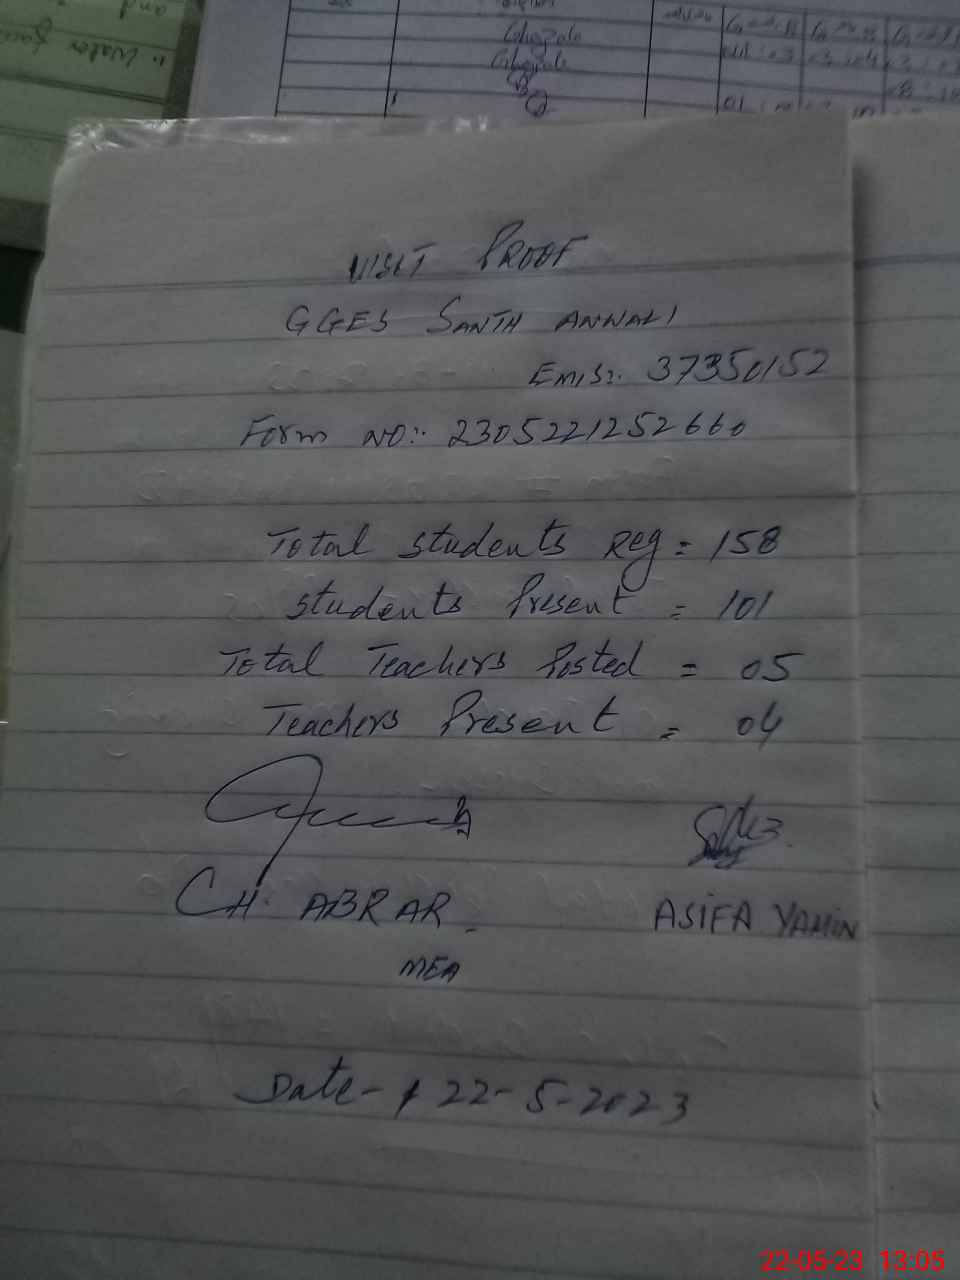 VISIT PROOF
GGES SANTH ANWALI
EMIS:. 37350152
Form NO:. 2305221252660
Total Students Reg = 158
Students Present = 101
Total Teachers Posted = 05
Teachers Present = 04
CH. ABRAR
ASIFA YAMIN
MEA
Date - 22-5-2023
22-05-23 13:05